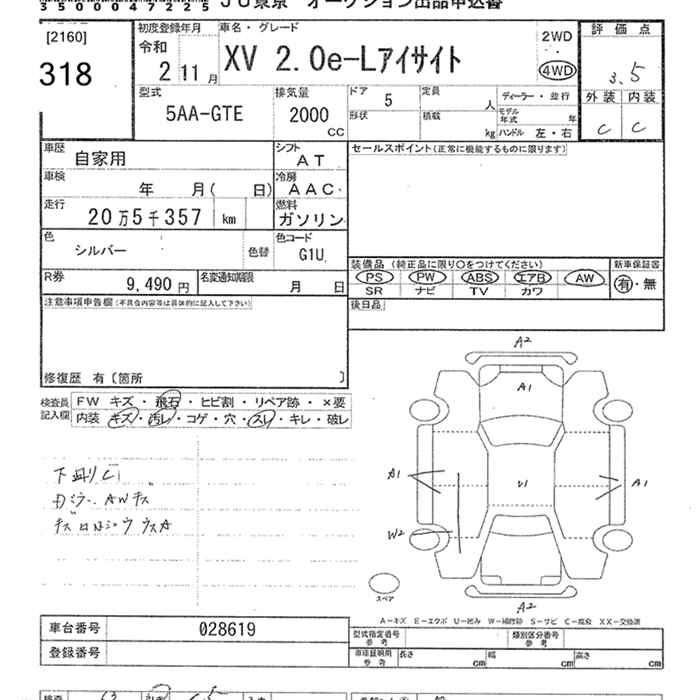 35000047225 JU東京 オークション出品申込書
[2160]
318
初度登録年月
令和
2 11 月
車名・グレード
XV 2.0e-Lアイサイト
2WD
4WD
評価点
3.5
外装 内装
C C
型式
5AA-GTE
排気量
2000
CC
ドア
5
形状
定員
人
積載
kg
ディーラー・並行
モデル年式 年
ハンドル 左・右
車歴
自家用
シフト
AT
セールスポイント(正常に機能するものに限ります)
車検
年 月( 日)
冷房
AAC
走行
20万5千357 km
燃料
ガソリン
色
シルバー
色替
色コード
G1U
装備品 (純正品に限り○をつけてください)
新車保証書
PS PW ABS エアB AW
SR ナビ TV カワ
有・無
R券
9,490 円
名変通知期限
月 日
後日品
注意事項申告欄(不具合内容等は具体的に記入して下さい)
修復歴 有〔箇所 〕
検査員記入欄
FW キズ・飛石・ヒビ割・リペア跡・×要
内装 キズ・汚レ・コゲ・穴・スレ・キレ・破レ
A2
A1
A1
U1
A1
W2
A2
スペア
A-キズ E-エクボ U-凹み W-補修跡 S-サビ C-腐食 XX-交換済
車台番号
028619
登録番号
型式指定番号
参考
類別区分番号
参考
車庫証明用
参考
長さ cm
幅 cm
高さ cm